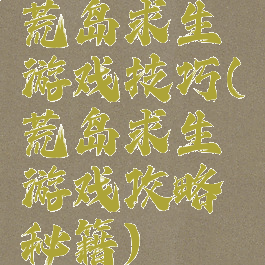 荒岛求生
游戏技巧(
荒岛求生
游戏攻略
秘籍)